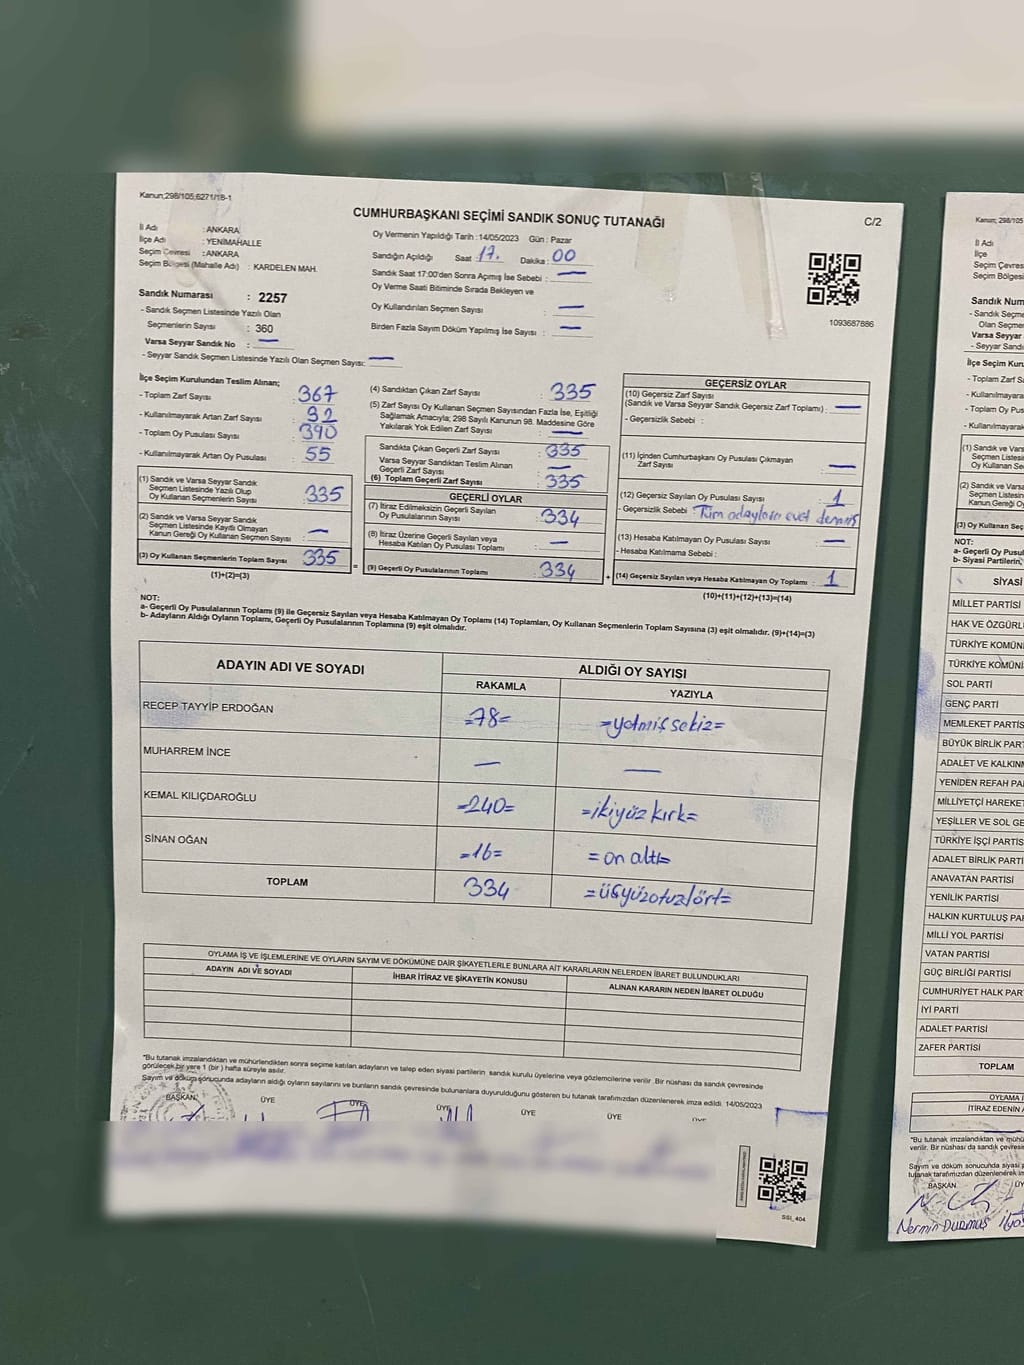 Kanun;298/105;6271/18-1
CUMHURBAŞKANI SEÇİMİ SANDIK SONUÇ TUTANAĞI
C/2
İl Adı : ANKARA
İlçe Adı : YENİMAHALLE
Seçim Çevresi : ANKARA
Seçim Bölgesi (Mahalle Adı) : KARDELEN MAH.
Sandık Numarası : 2257
- Sandık Seçmen Listesinde Yazılı Olan
Seçmenlerin Sayısı : 360
Varsa Seyyar Sandık No : —
- Seyyar Sandık Seçmen Listesinde Yazılı Olan Seçmen Sayısı: —
Oy Vermenin Yapıldığı Tarih :14/05/2023 Gün : Pazar
Sandığın Açıldığı Saat : 17. Dakika : 00
Sandık Saat 17:00'den Sonra Açımış İse Sebebi : —
Oy Verme Saati Bitiminde Sırada Bekleyen ve
Oy Kullandırılan Seçmen Sayısı : —
Birden Fazla Sayım Döküm Yapılmış İse Sayısı : —
1093687886
İlçe Seçim Kurulundan Teslim Alınan;
- Toplam Zarf Sayısı : 367
- Kullanılmayarak Artan Zarf Sayısı : 32
- Toplam Oy Pusulası Sayısı : 390
- Kullanılmayarak Artan Oy Pusulası : 55
(1) Sandık ve Varsa Seyyar Sandık
Seçmen Listesinde Yazılı Olup
Oy Kullanan Seçmenlerin Sayısı : 335
(2) Sandık ve Varsa Seyyar Sandık
Seçmen Listesinde Kayıtlı Olmayan
Kanun Gereği Oy Kullanan Seçmen Sayısı : —
(3) Oy Kullanan Seçmenlerin Toplam Sayısı : 335
(1)+(2)=(3)
(4) Sandıktan Çıkan Zarf Sayısı : 335
(5) Zarf Sayısı Oy Kullanan Seçmen Sayısından Fazla İse, Eşitliği
Sağlamak Amacıyla; 298 Sayılı Kanunun 98. Maddesine Göre
Yakılarak Yok Edilen Zarf Sayısı : —
Sandıkta Çıkan Geçerli Zarf Sayısı : 335
Varsa Seyyar Sandıktan Teslim Alınan
Geçerli Zarf Sayısı : —
(6) Toplam Geçerli Zarf Sayısı : 335
GEÇERLİ OYLAR
(7) İtiraz Edilmeksizin Geçerli Sayılan
Oy Pusulalarının Sayısı : 334
(8) İtiraz Üzerine Geçerli Sayılan veya
Hesaba Katılan Oy Pusulası Toplamı : —
(9) Geçerli Oy Pusulalarının Toplamı : 334
GEÇERSİZ OYLAR
(10) Geçersiz Zarf Sayısı
(Sandık ve Varsa Seyyar Sandık Geçersiz Zarf Toplamı) : —
- Geçersizlik Sebebi :
(11) İçinden Cumhurbaşkanı Oy Pusulası Çıkmayan
Zarf Sayısı : —
(12) Geçersiz Sayılan Oy Pusulası Sayısı : 1
- Geçersizlik Sebebi : Tüm adaylara evet denmiş
(13) Hesaba Katılmayan Oy Pusulası Sayısı : —
- Hesaba Katılmama Sebebi :
(14) Geçersiz Sayılan veya Hesaba Katılmayan Oy Toplamı : 1
(10)+(11)+(12)+(13)=(14)
NOT:
a- Geçerli Oy Pusulalarının Toplamı (9) ile Geçersiz Sayılan veya Hesaba Katılmayan Oy Toplamı (14) Toplamları, Oy Kullanan Seçmenlerin Toplam Sayısına (3) eşit olmalıdır. (9)+(14)=(3)
b- Adayların Aldığı Oyların Toplamı, Geçerli Oy Pusulalarının Toplamına (9) eşit olmalıdır.
ADAYIN ADI VE SOYADI ALDIĞI OY SAYISI
RAKAMLA YAZIYLA
RECEP TAYYİP ERDOĞAN =78= =yetmiş sekiz=
MUHARREM İNCE — —
KEMAL KILIÇDAROĞLU =240= =ikiyüz kırk=
SİNAN OĞAN =16= =on altı=
TOPLAM 334 =üçyüzotuzdört=
OYLAMA İŞ VE İŞLEMLERİNE VE OYLARIN SAYIM VE DÖKÜMÜNE DAİR ŞİKAYETLERLE BUNLARA AİT KARARLARIN NELERDEN İBARET BULUNDUKLARI
ADAYIN ADI VE SOYADI İHBAR İTİRAZ VE ŞİKAYETİN KONUSU ALINAN KARARIN NEDEN İBARET OLDUĞU
*Bu tutanak imzalandıktan ve mühürlendikten sonra seçime katılan adayların ve talep eden siyasi partilerin sandık kurulu üyelerine veya gözlemcilerine verilir. Bir nüshası da sandık çevresinde
görülecek bir yere 1 (bir) hafta süreyle asılır.
Sayım ve döküm sonucunda adayların aldığı oyların sayılarını ve bunların sandık çevresinde bulunanlara duyurulduğunu gösteren bu tutanak tarafımızdan düzenlenerek imza edildi. 14/05/2023
BAŞKAN ÜYE ÜYE ÜYE ÜYE ÜYE ÜYE
SSI_404
Kanun; 298/105
İl Adı
İlçe
Seçim Çevres
Seçim Bölgesi
Sandık Num
- Sandık Seçme
Olan Seçmen
Varsa Seyyar
- Seyyar Sandı
İlçe Seçim Kur
- Toplam Zarf S
- Kullanılmaya
- Toplam Oy Pu
- Kullanılmayarak
(1) Sandık ve Vars
Seçmen Listesi
Oy Kullanan Se
(2) Sandık ve Vars
Seçmen Listesi
Kanun Gereği O
(3) Oy Kullanan Seç
NOT:
a- Geçerli Oy Pusu
b- Siyasi Partilerin,
SİYASİ
MİLLET PARTİSİ
HAK VE ÖZGÜRL
TÜRKİYE KOMÜN
TÜRKİYE KOMÜNİ
SOL PARTİ
GENÇ PARTİ
MEMLEKET PARTİS
BÜYÜK BİRLİK PART
ADALET VE KALKINM
YENİDEN REFAH PA
MİLLİYETÇİ HAREKET
YEŞİLLER VE SOL GE
TÜRKİYE İŞÇİ PARTİS
ADALET BİRLİK PARTİ
ANAVATAN PARTİSİ
YENİLİK PARTİSİ
HALKIN KURTULUŞ PA
MİLLİ YOL PARTİSİ
VATAN PARTİSİ
GÜÇ BİRLİĞİ PARTİSİ
CUMHURİYET HALK PAR
İYİ PARTİ
ADALET PARTİSİ
ZAFER PARTİSİ
TOPLAM
OYLAMA İ
İTİRAZ EDENİN A
*Bu tutanak imzalandıktan ve mühü
verilir. Bir nüshası da sandık çevresin
Sayım ve döküm sonucunda siyasi p
tutanak tarafımızdan düzenlenerek im
BAŞKAN ÜY
Nermin Durmuş